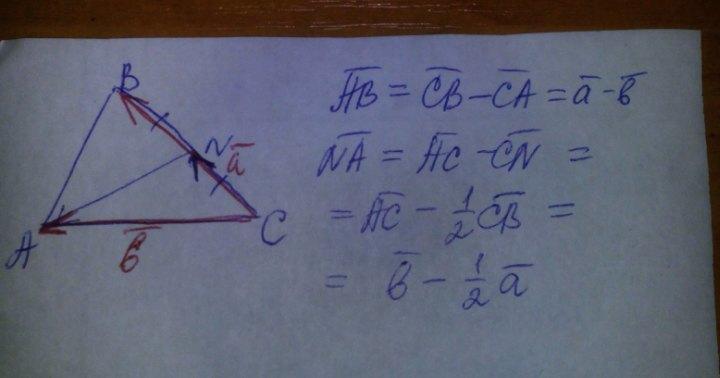 B
N
a̅
A
b̅
C
A̅B̅ = C̅B̅ - C̅A̅ = a̅ - b̅
N̅A̅ = A̅C̅ - C̅N̅ =
= A̅C̅ - 1/2 C̅B̅ =
= b̅ - 1/2 a̅